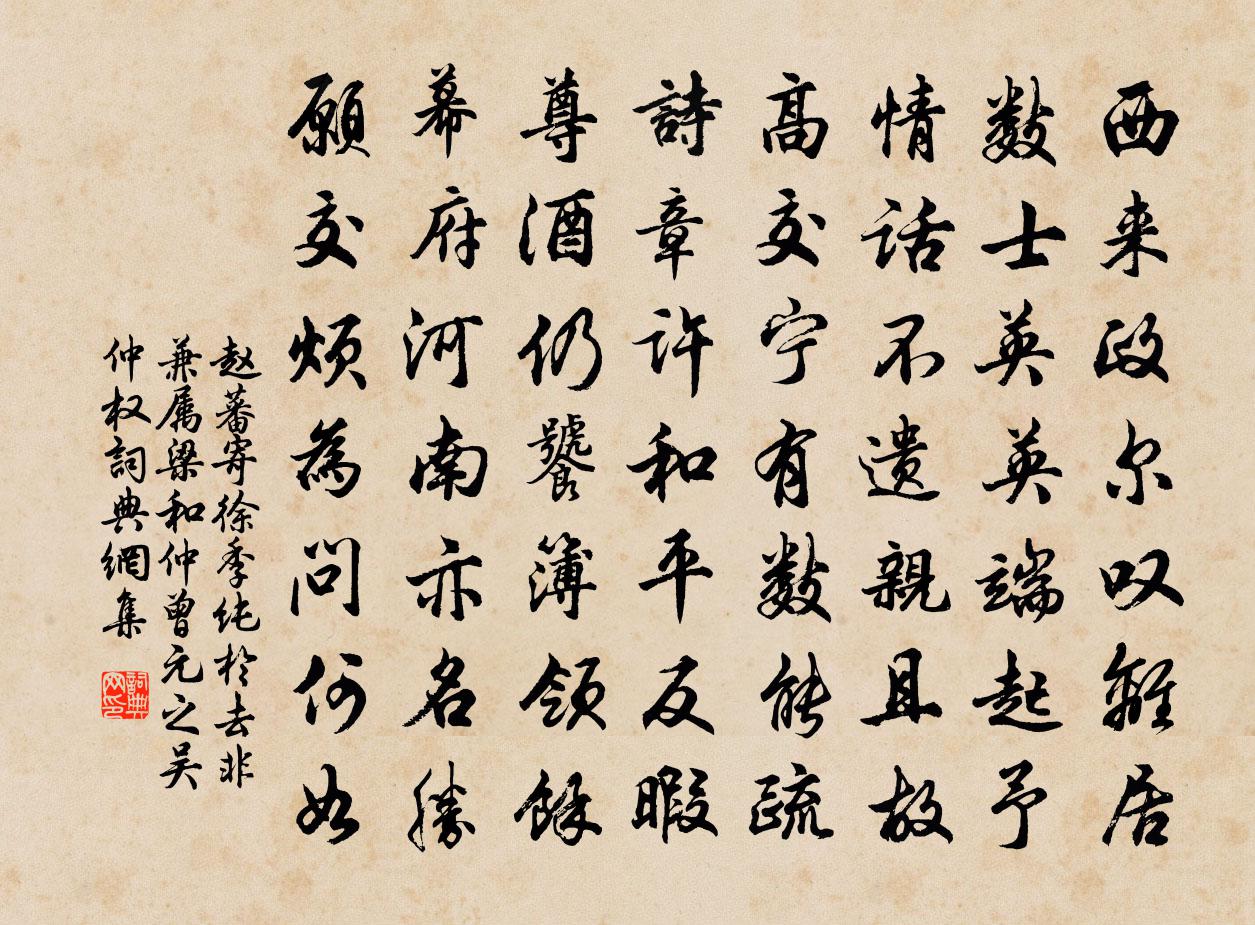 西来政尔叹離居
数士英英端起予
情话不遗親且故
高交宁有数能疏
詩章許和平反暇
尊酒仍饕簿領餘
幕府河南亦名勝
願交烦為问何如
赵蕃寄徐季纯於去非
兼属梁和仲曾元之吴
仲权詞典網集
詞典网印